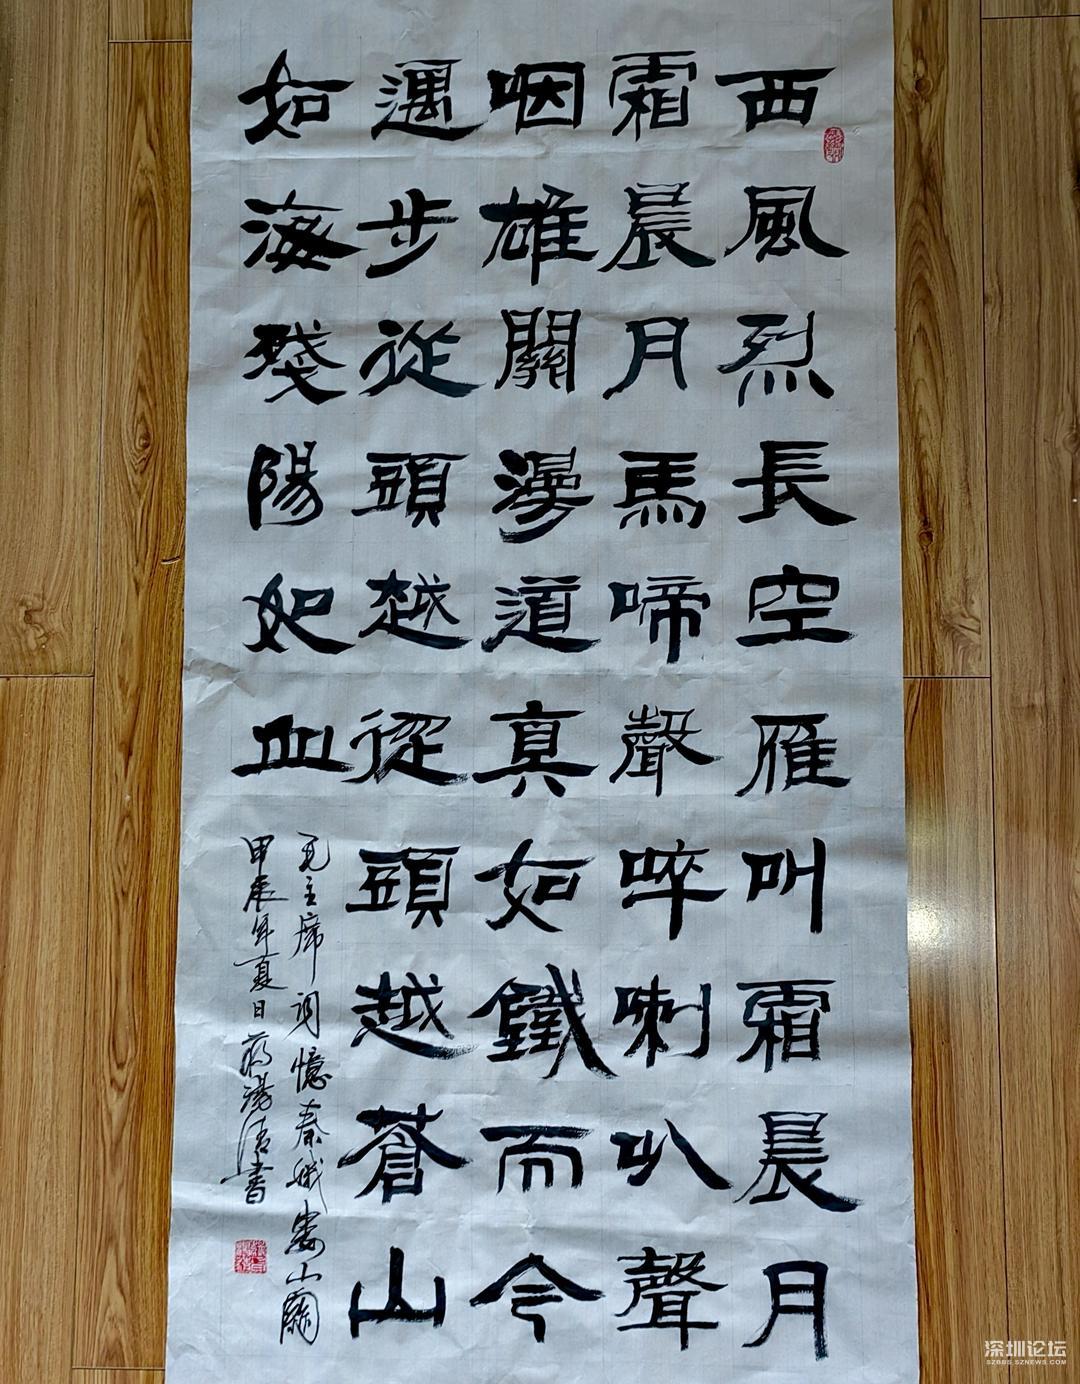 西風烈長空雁叫霜晨月
霜晨月馬啼聲啐喇叭聲
咽雄關漫道真如鐵而今
邁步從頭越從頭越蒼山
如海殘陽如血
毛主席词憶秦娥娄山關
甲辰年夏日蔣湯清書
深圳论坛
SZBBS.SZNEWS.COM